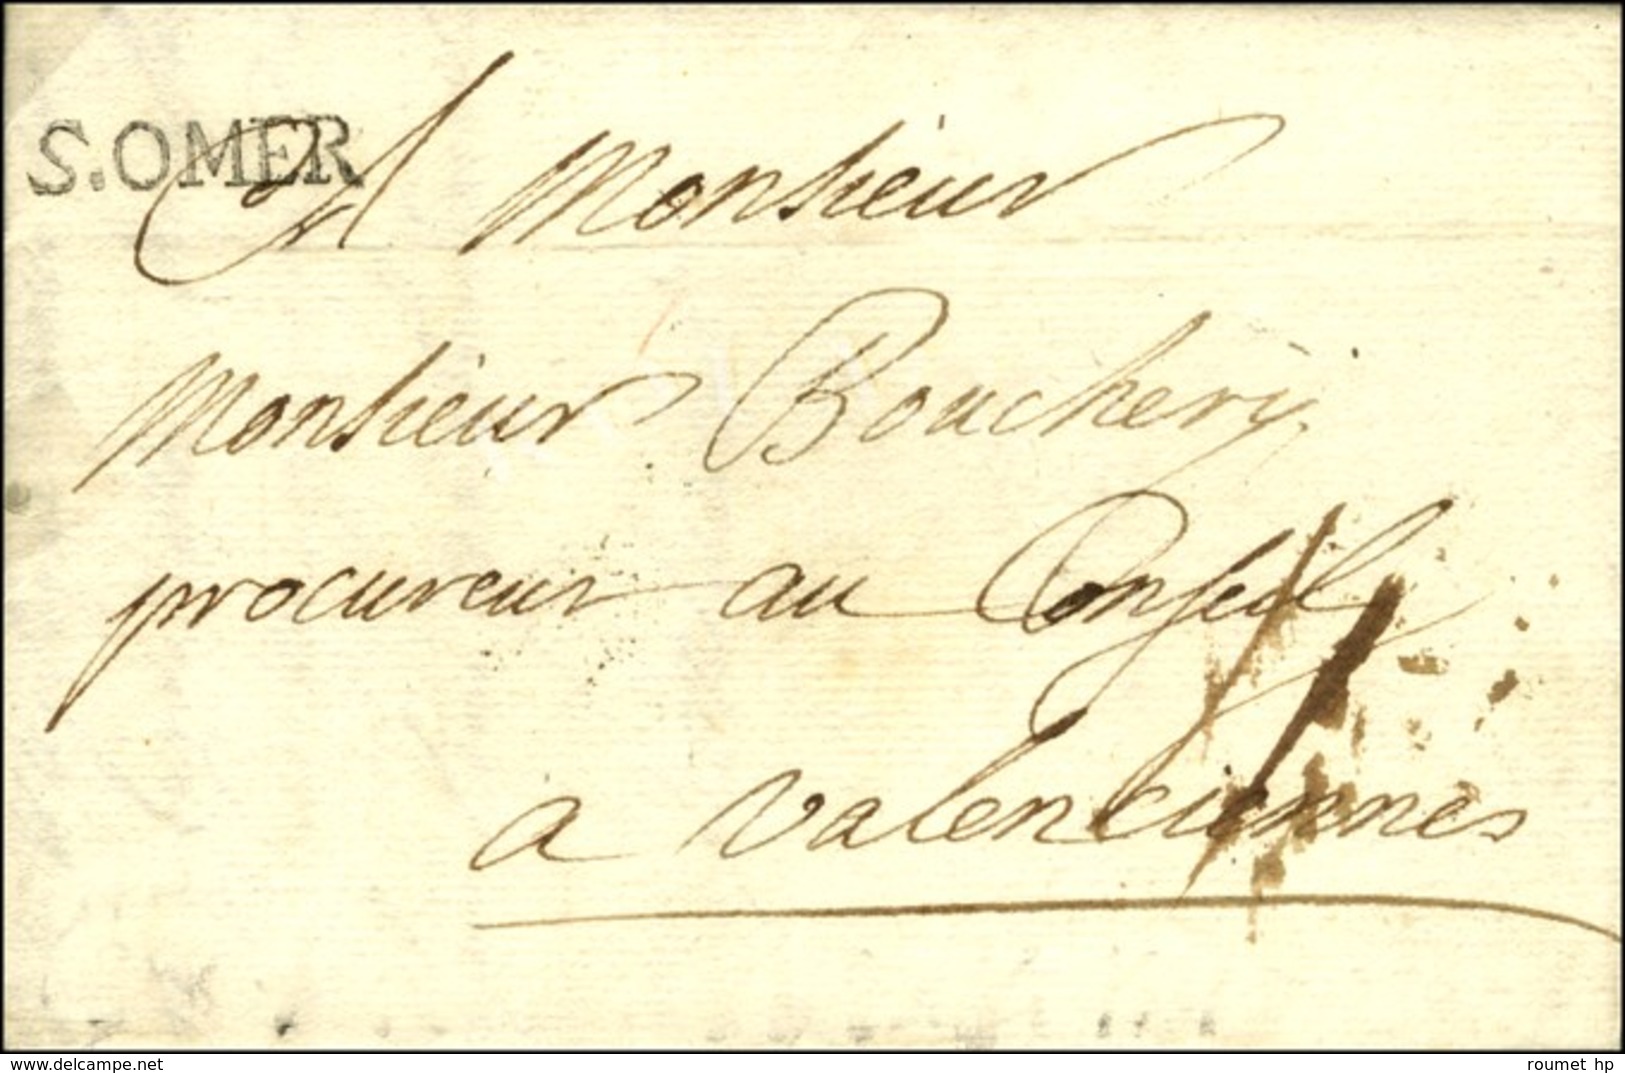 S.OMER
A Monsieur
Monsieur Bouchery
procureur au Conseil
a Valenciennes
delcampe.net
roumet hp